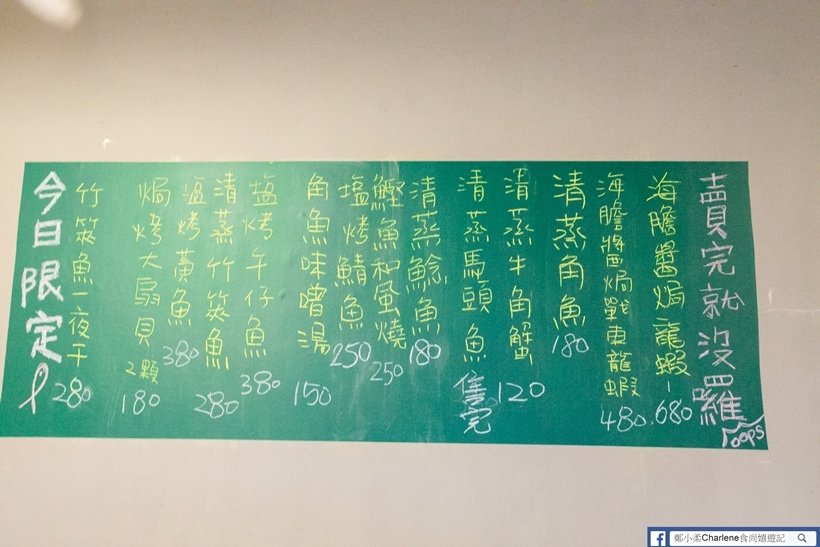 賣完就沒囉
oops
海膽醬焗龍蝦 680
海膽醬焗戰車龍蝦 480
清蒸角魚 180
清蒸牛角蟹 120
清蒸馬頭魚 售完
清蒸鯰魚 180
鰹魚和風燒 250
塩烤鯖魚 250
角魚味噌湯 150
塩烤午仔魚 380
清蒸竹筴魚 280
塩烤黃魚 380
焗烤大扇貝 2顆 180
竹筴魚一夜干 280
今日限定
鄭小柔Charlene食尚嬉遊記